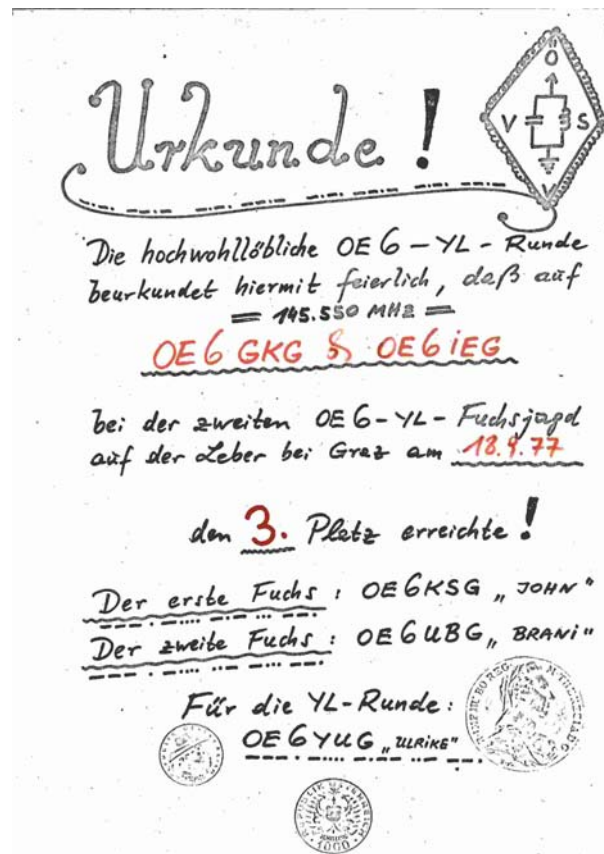 Urkunde !
Ö
V S
V
Die hochwohllöbliche OE6-YL-Runde
beurkundet hiermit feierlich, daß auf
= 145.550 MHz =
OE6GKG & OE6iEG
bei der zweiten OE6-YL-Fuchsjagd
auf der Leber bei Graz am 18.9.77
den 3. Platz erreichte!
Der erste Fuchs: OE6KSG „JOHN"
Der zweite Fuchs: OE6UBG „BRANi"
Für die YL-Runde:
OE6YUG „ULRiKE"
REPUBLIK ÖSTERREICH
1000